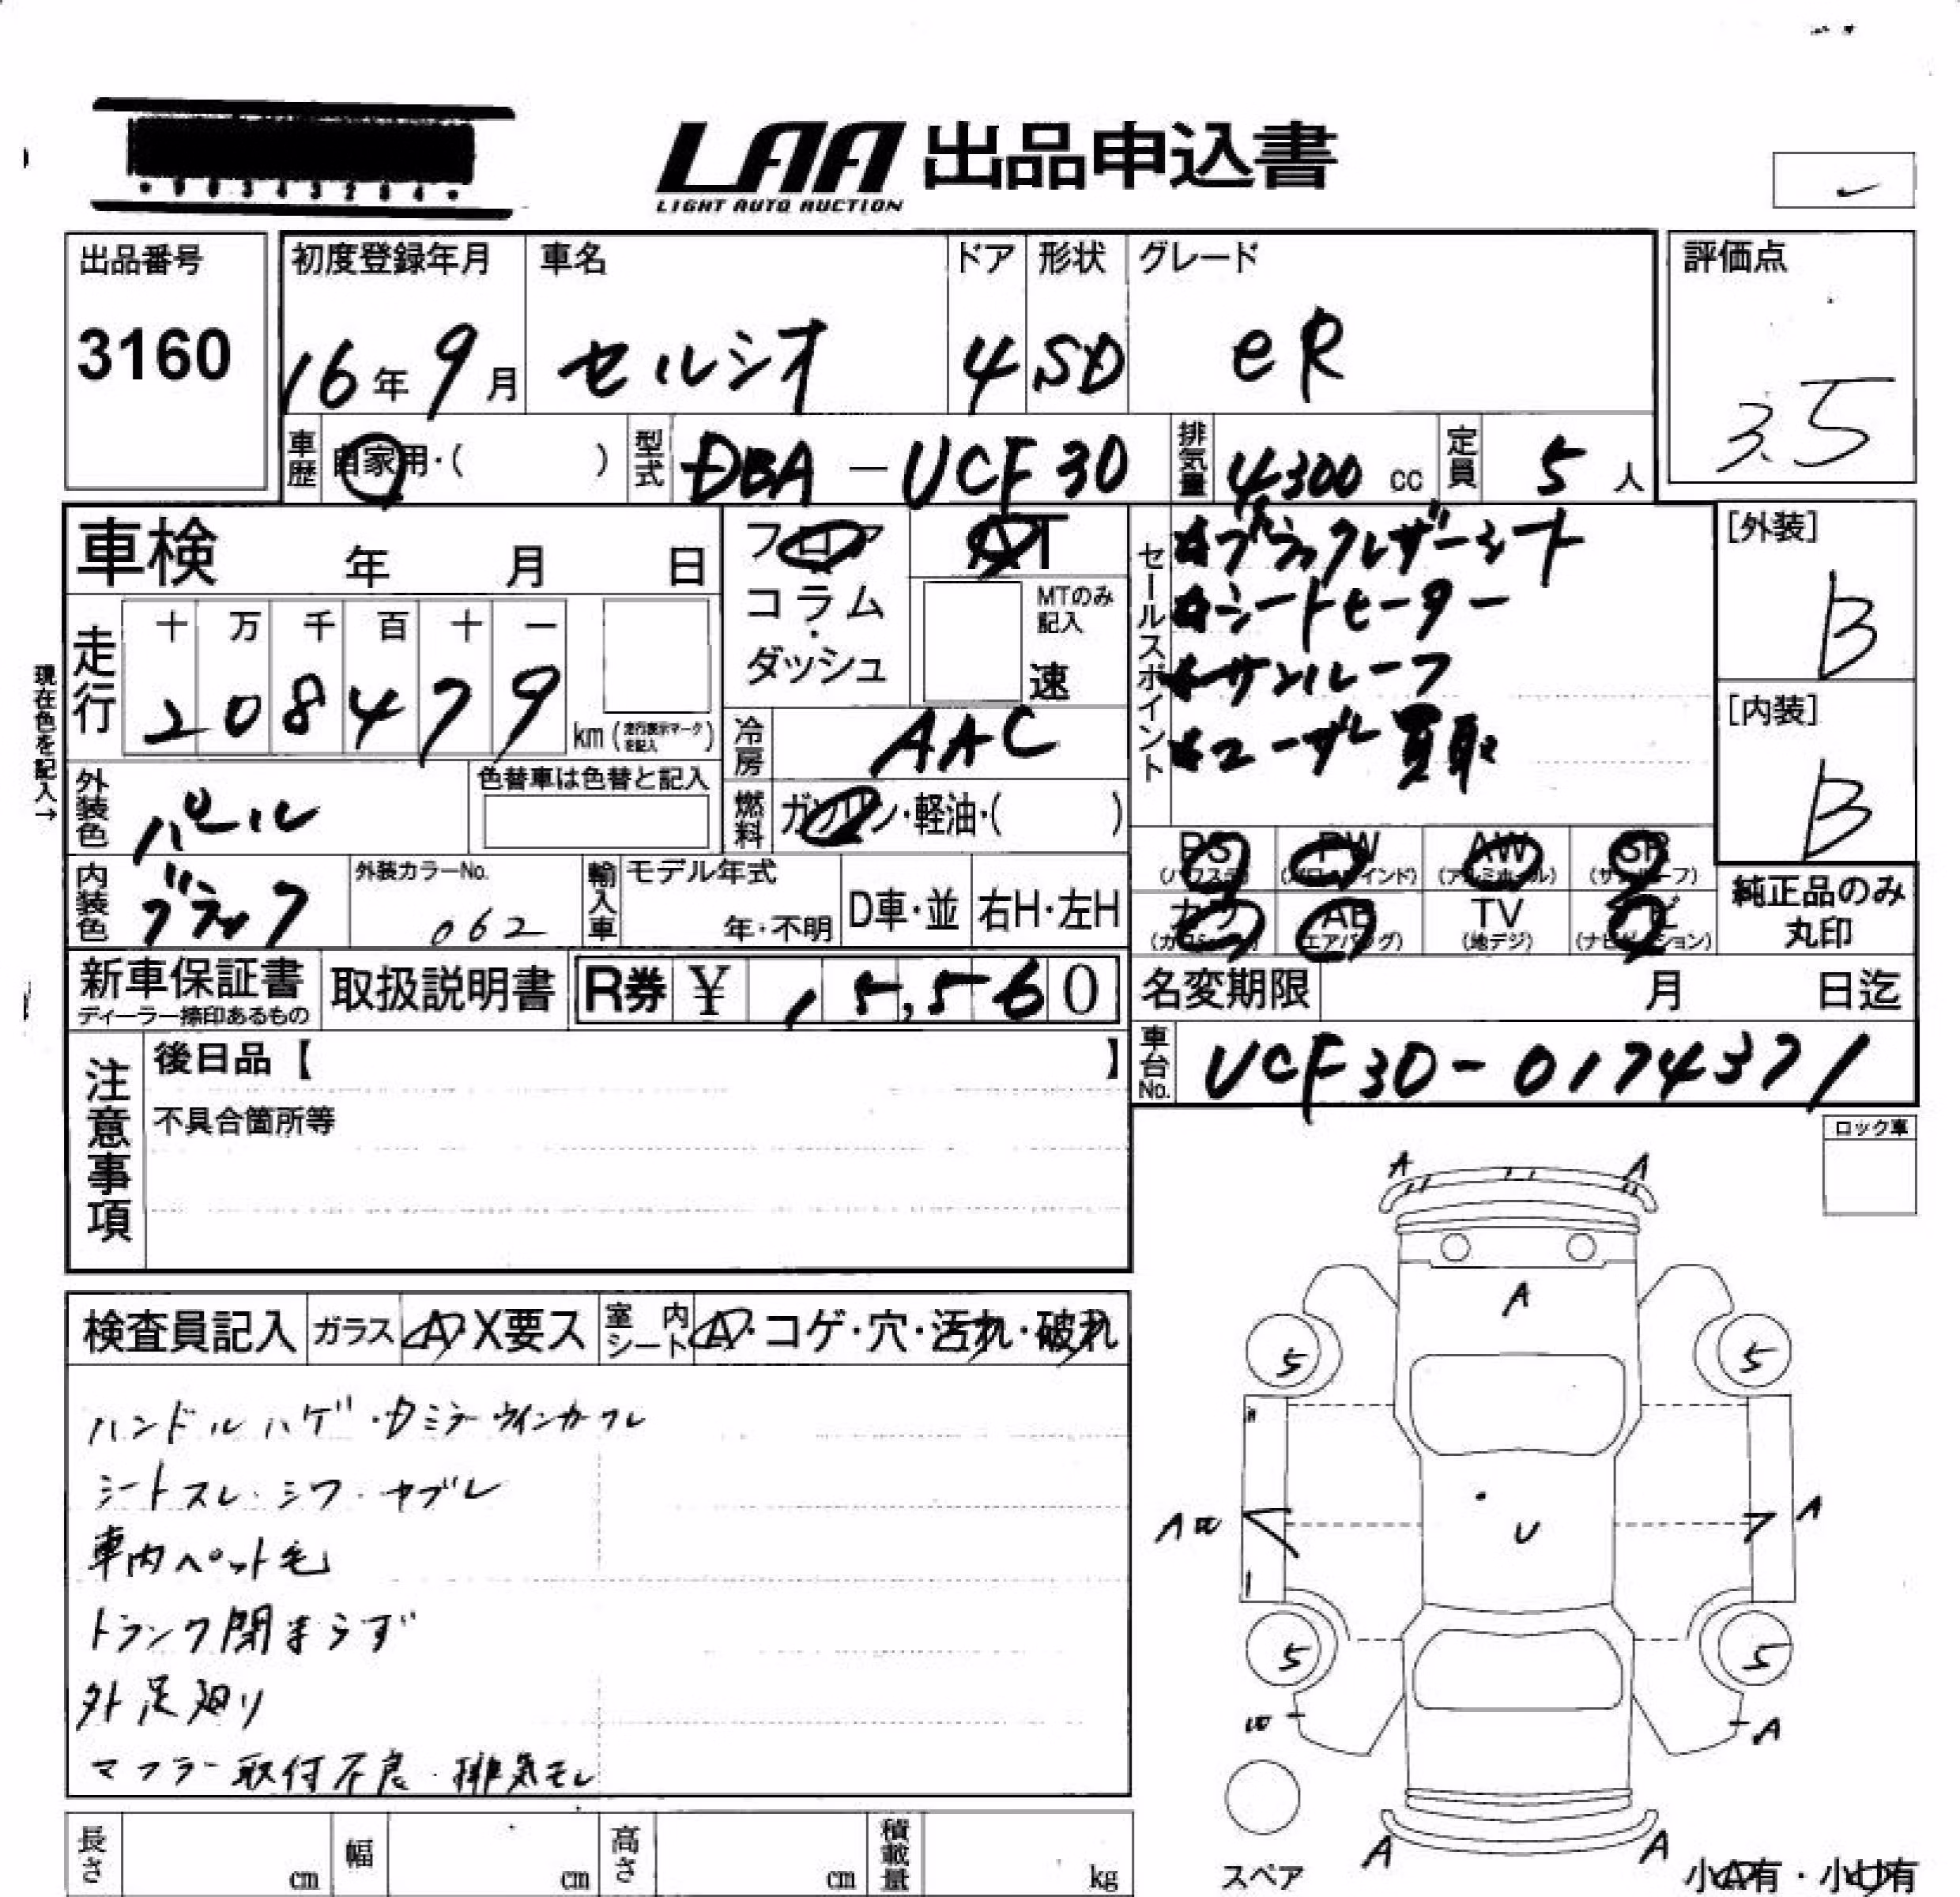 LAA 出品申込書
LIGHT AUTO AUCTION
出品番号
3160
初度登録年月
16年9月
車名
セルシオ
ドア
4
形状
SD
グレード
eR
評価点
3.5
車歴
自家用・( )
型式
DBA-UCF30
排気量
4300 cc
定員
5人
車検 年 月 日
フロア
コラム
・
ダッシュ
AT
MTのみ
記入
速
セールスポイント
☆ブラックレザーシート
☆シートヒーター
☆サンルーフ
☆ユーザー買取
[外装]
B
[内装]
B
現在色を記入→
走行
十 万 千 百 十 一
2 0 8 4 7 9
km (走行表示マークを記入)
冷房
AAC
外装色
パール
色替車は色替と記入
燃料
ガソリン・軽油・( )
内装色
ブラック
外装カラーNo.
062
輸入車
モデル年式
年・不明
D車・並
右H・左H
PS PW AW SR
(パワステ) (パワーウインド) (アルミホイル) (サンルーフ)
カワ AB TV ナビ
(カワシート) (エアバッグ) (地デジ) (ナビゲーション)
純正品のみ
丸印
新車保証書
ディーラー捺印あるもの
取扱説明書
R券 ¥ 15,560
名変期限 月 日迄
車台No.
UCF30-0174371
注意事項
後日品【 】
不具合箇所等
ロック車
検査員記入
ガラス
A・X要ス
室内シート
A・コゲ・穴・汚れ・破れ
ハンドルハゲ・カミラーウインカーワレ
シートスレ・シワ・ヤブレ
車内ペット毛
トランク閉まらず
外足廻り
マフラー取付不良・排気モレ
A A
A
5 5
A A
U
5 5
A
A A
スペア
小A有・小U有
長さ cm
幅 cm
高さ cm
積載量 kg